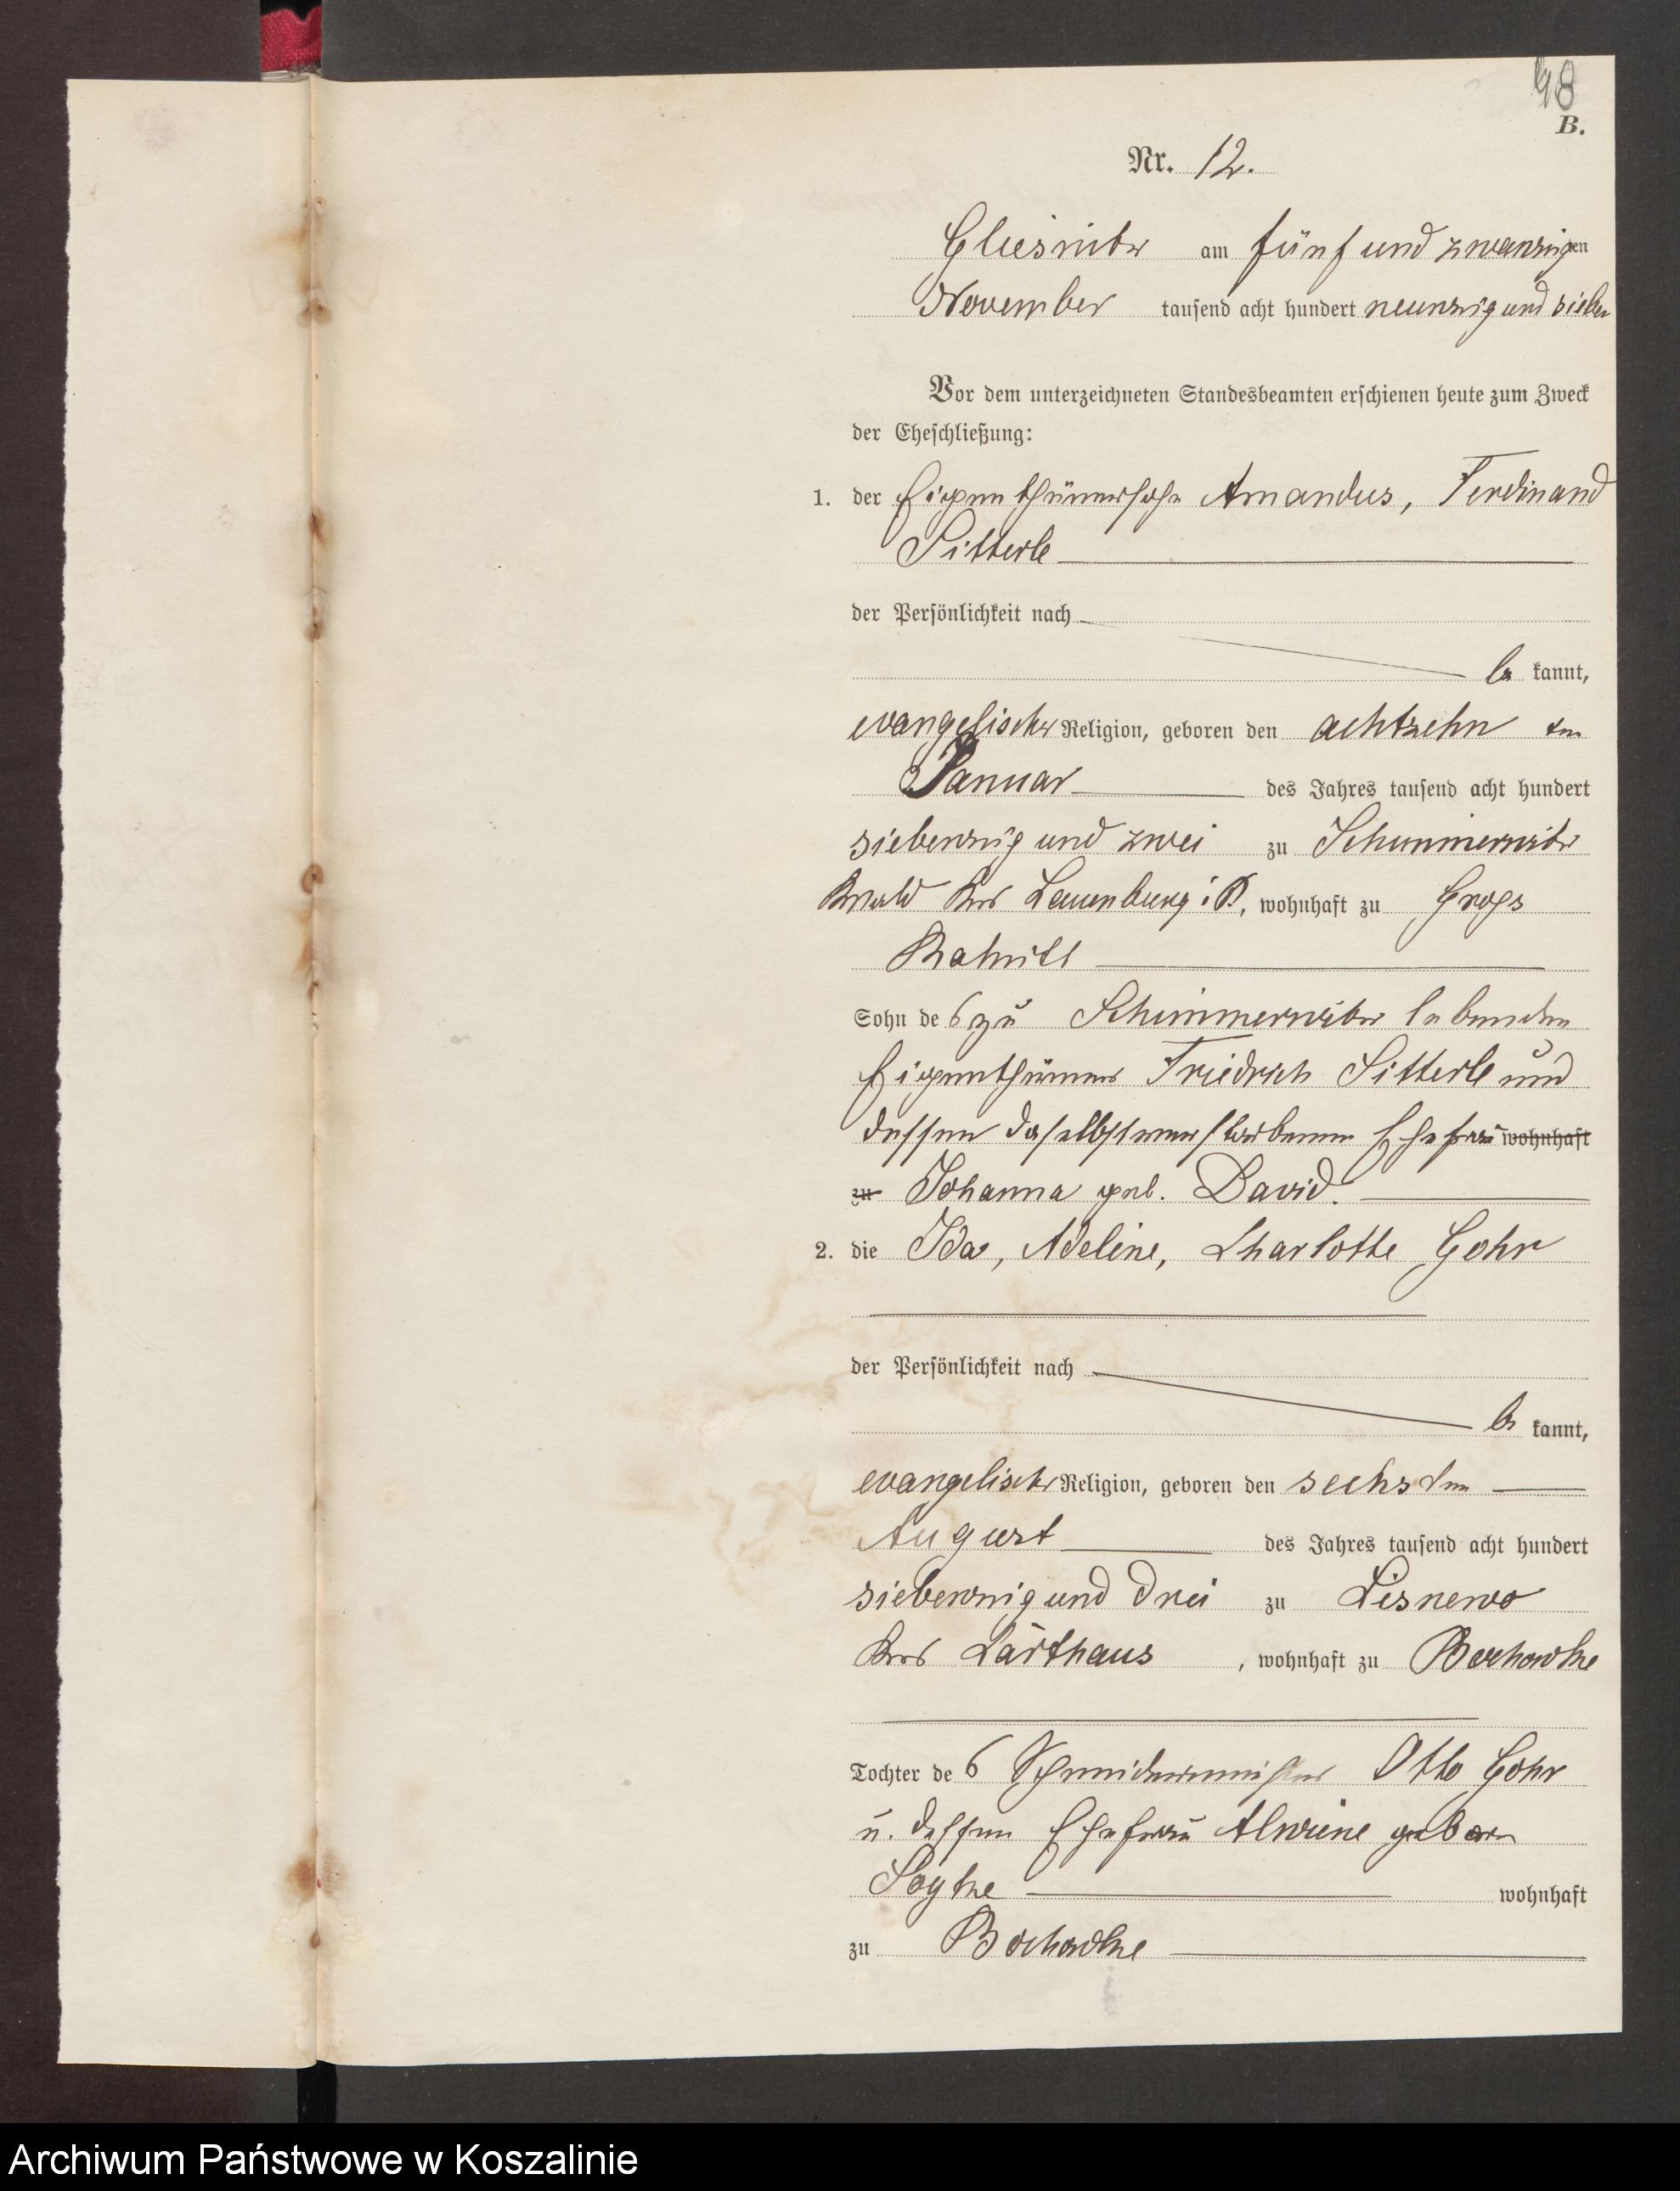 48
B.
Nr. 12.
Gliesnitz am fünf und zwanzigen
November tausend acht hundert neunzig und sieben
Vor dem unterzeichneten Standesbeamten erschienen heute zum Zweck
der Eheschließung:
1. der Eigenthümersohn Amandus, Ferdinand
Sitterle
der Persönlichkeit nach
be kannt,
evangelischer Religion, geboren den achtzehn ten
Januar des Jahres tausend acht hundert
siebenzig und zwei zu Schimmerwitz
Kreis Lauenburg i P., wohnhaft zu Gross
Rakitt
Sohn des zu Schimmerwitz lebenden
Eigenthümers Friedrich Sitterle und
dessen daselbst verstorbenen Ehefrau wohnhaft
zu Johanna geb. David.
2. die Ida, Adeline, Charlotte Gohr
der Persönlichkeit nach
be kannt,
evangelischer Religion, geboren den sechsten
August des Jahres tausend acht hundert
siebenzig und drei zu Lisnewo
Kreis Carthaus, wohnhaft zu Bochowke
Tochter des Schneidermeisters Otto Gohr
u. dessen Ehefrau Alwine geboren
Soyke wohnhaft
zu Bochowke
Archiwum Państwowe w Koszalinie